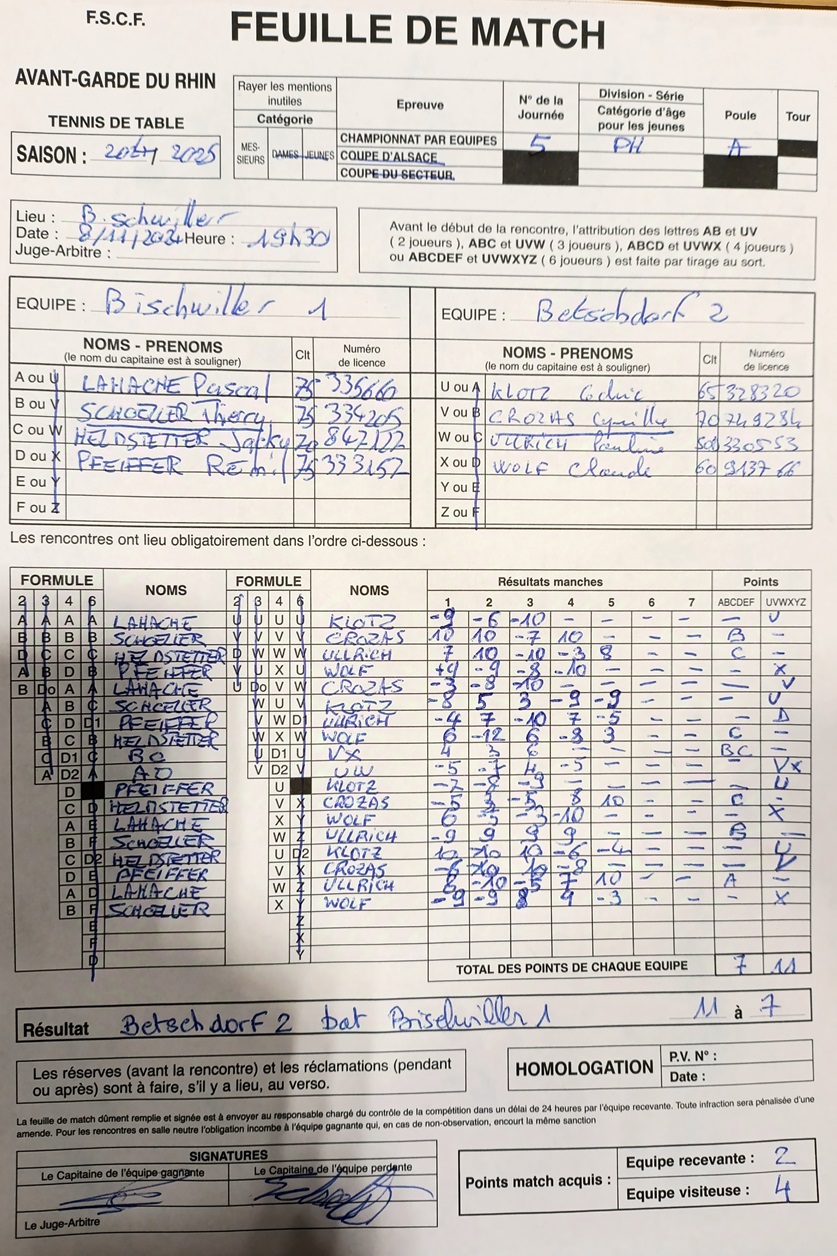 F.S.C.F.
FEUILLE DE MATCH
AVANT-GARDE DU RHIN
TENNIS DE TABLE
SAISON : 2024 2025
Rayer les mentions inutiles
Catégorie
MES-SIEURS DAMES JEUNES
Epreuve
CHAMPIONNAT PAR EQUIPES
COUPE D'ALSACE
COUPE DU SECTEUR
N° de la Journée
5
Division - Série
Catégorie d'âge pour les jeunes
PH
Poule
A
Tour
Lieu : Bischwiller
Date : 8/11/2024 Heure : 19h30
Juge-Arbitre :
Avant le début de la rencontre, l'attribution des lettres AB et UV
( 2 joueurs ), ABC et UVW ( 3 joueurs ), ABCD et UVWX ( 4 joueurs )
ou ABCDEF et UVWXYZ ( 6 joueurs ) est faite par tirage au sort.
EQUIPE : Bischwiller 1
NOMS - PRENOMS Clt Numéro de licence
(le nom du capitaine est à souligner)
A ou U LAMACHE Pascal 75 335660
B ou V SCHOELLER Thierry 75 334205
C ou W HELDSTETTER Jacky 70 847122
D ou X PFEIFFER Rémi 75 333157
E ou Y
F ou Z
EQUIPE : Betschdorf 2
NOMS - PRENOMS Clt Numéro de licence
(le nom du capitaine est à souligner)
U ou A KLOTZ Cédric 65 328320
V ou B CROZAS Cyrille 70 749284
W ou C ULLRICH Pauline 330553
X ou D WOLF Claude 60 913766
Y ou E
Z ou F
Les rencontres ont lieu obligatoirement dans l'ordre ci-dessous :
FORMULE NOMS FORMULE NOMS Résultats manches Points
2 3 4 6 2 3 4 6 1 2 3 4 5 6 7 ABCDEF UVWXYZ
A A A A LAMACHE U U U U KLOTZ -9 -6 -10 - - - - - U
B B B B SCHOELLER V V V V CROZAS 10 10 -7 10 - - - B -
D C C C HELDSTETTER D W W W ULLRICH 7 10 -10 -3 8 - - C -
A B D D PFEIFFER V U X U WOLF +9 -9 -8 -10 - - - - X
B Do A A LAMACHE U Do V W CROZAS -3 -8 -10 - - - - - V
A B C SCHOELLER W U V KLOTZ -8 5 3 -9 -9 - - - U
C D D1 PFEIFFER V W D1 ULLRICH -4 7 -10 7 -5 - - - D
B C B HELDSTETTER W X W WOLF 6 -12 6 -8 3 - - C -
C D1 C BC U D1 U VX 4 3 6 - - - - BC -
A D2 A AD V D2 V UW -5 -7 4 -5 - - - - VX
D PFEIFFER U KLOTZ -7 -8 -9 - - - - - U
C D HELDSTETTER V X CROZAS -5 3 -5 8 10 - - C -
A E LAMACHE X Y WOLF 6 -3 -3 -10 - - - - X
B F SCHOELLER W Z ULLRICH -9 9 9 9 - - - B -
C D2 HELDSTETTER U D2 KLOTZ 10 -10 10 -6 -4 - - - U
D E PFEIFFER V X CROZAS -6 10 -10 -8 - - - - V
A D LAMACHE W Z ULLRICH 6 -10 -5 7 10 - - A -
B F SCHOELLER X Y WOLF -9 -9 8 9 -3 - - - X
E Z
F X
D Y
TOTAL DES POINTS DE CHAQUE EQUIPE 7 11
Résultat Betschdorf 2 bat Bischwiller 1 11 à 7
Les réserves (avant la rencontre) et les réclamations (pendant
ou après) sont à faire, s'il y a lieu, au verso.
HOMOLOGATION
P.V. N° :
Date :
La feuille de match dûment remplie et signée est à envoyer au responsable chargé du contrôle de la compétition dans un délai de 24 heures par l'équipe recevante. Toute infraction sera pénalisée d'une
amende. Pour les rencontres en salle neutre l'obligation incombe à l'équipe gagnante qui, en cas de non-observation, encourt la même sanction
SIGNATURES
Le Capitaine de l'équipe gagnante Le Capitaine de l'équipe perdante
Le Juge-Arbitre
Points match acquis :
Equipe recevante : 2
Equipe visiteuse : 4